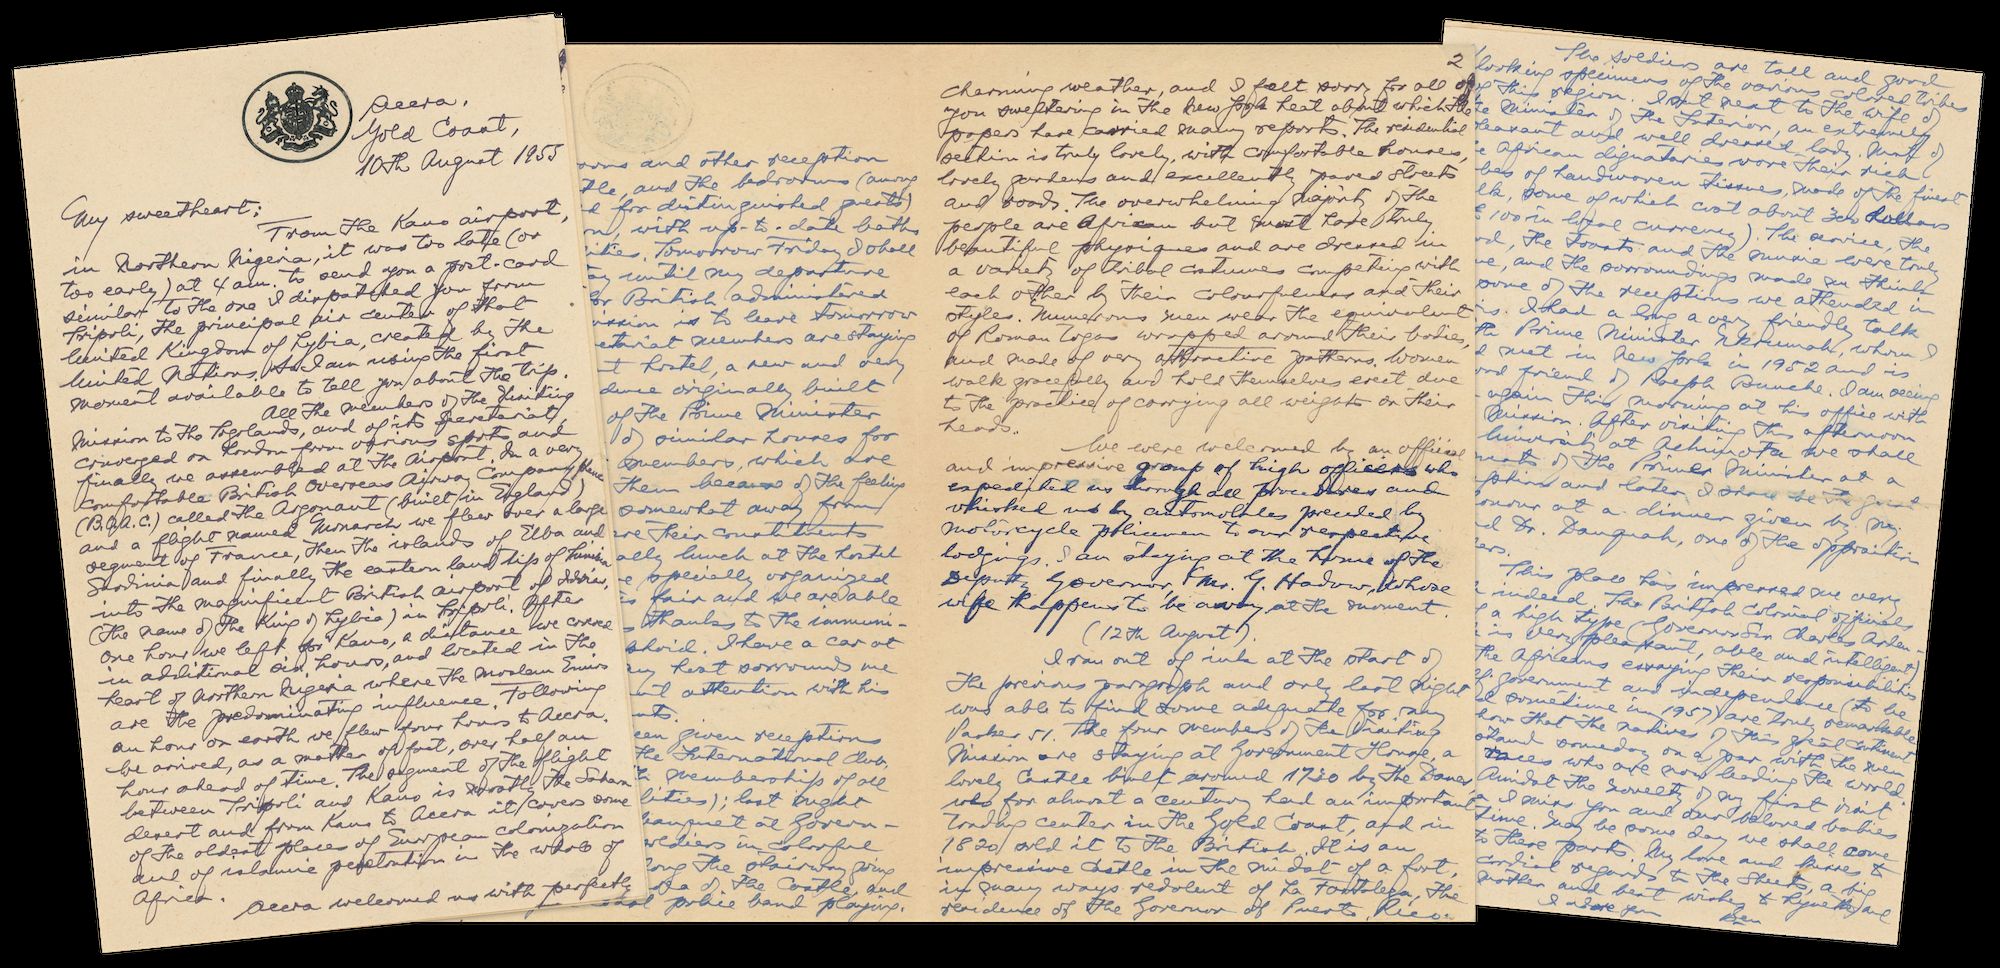 Accra,
Gold Coast,
10th August 1955
My sweetheart:
From the Kano airport,
in Northern Nigeria, it was too late (or
too early) at 4 am. to send you a post-card
similar to the one I dispatched you from
Tripoli, the principal air center of that
United Kingdom of Lybia, created by the
United Nations. So I am using the first
moment available to tell you about the trip.
All the members of the Visiting
Mission to the Togolands, and of its Secretariat,
converged on London from various spots and
finally we assembled at the Airport. In a very
comfortable British Overseas Airway Company plane
(B.O.A.C.) called the Argonaut (built in England)
and a flight named Monarch we flew over a large
segment of France, then the islands of Elba and
Sardinia and finally the eastern land tips of Tunisia
into the magnificent British airport of Idris,
(the name of the King of Lybia) in Tripoli. After
one hour we left for Kano, a distance we covered
in additional six hours, and located in the
heart of Northern Nigeria where the Moslem Emirs
are the predominating influence. Following
an hour on earth we flew four hours to Accra.
We arrived, as a matter of fact, over half an
hour ahead of time. The segment of the flight
between Tripoli and Kano is mostly the Sahara
desert and from Kano to Accra it covers some
of the oldest places of European colonization
and of islamic penetration in the whole of
Africa.
Accra welcomed us with perfectly
ooms and other reception
tle, and the bedrooms (among
d for distinguished guests)
on, with up-to-date baths
ilities. Tomorrow Friday I shall
ay until my departure
for British administered
ission is to leave tomorrow
etariat members are staying
t hostel, a new and very
dence originally built
of the Prime Minister
of similar houses for
members, which are
them because of the feeling
somewhat away from
are their constituents
ally lunch at the hostel
e specially organized
is fair and we are able
s thanks to the immuni-
shoid. I have a car at
my host sorrounds me
nt attention with his
nts.
een given receptions
the International Club,
th membership of all
lities); last night
banquet at Govern-
soldiers in colorful
long the stairway going
ea of the Castle, and
nal police band playing.
2
charming weather, and I felt sorry for all of
you sweltering in the New York heat about which the
papers have carried many reports. The residential
section is truly lovely, with comfortable houses,
lovely gardens and excellently paved streets
and roads. The overwhelming majority of the
people are African but most have truly
beautiful physiques and are dressed in
a variety of tribal costumes competing with
each other by their colourfulness and their
styles. Numerous men wear the equivalent
of Roman togas wrapped around their bodies,
and made of very attractive patterns. Women
walk gracefully and hold themselves erect due
to the practice of carrying all weights on their
heads.
We were welcomed by an official
and impressive group of high officers who
expedited us through all procedures and
whisked us by automobiles preceded by
motorcycle policemen to our respective
lodgings. I am staying at the home of the
Deputy Governor, Mr. G. Hadow, whose
wife happens to be away, at the moment.
(12th August).
I ran out of ink at the start of
the previous paragraph and only last night
was able to find some adequate for my
Parker 51. The four members of the Visiting
Mission are staying at Government House, a
lovely Castle built around 1720 by the Danes
who for almost a century had an important
trading center in the Gold Coast, and in
1820 sold it to the British. It is an
impressive castle in the midst of a fort,
in many ways redolent of La Fortaleza, the
residence of the Governor of Puerto Rico.
The soldiers are tall and good
looking specimens of the various colored tribes
of this region. I sat next to the wife of
e Minister of the Interior, an extremely
leasant and well dressed lady. Most of
e African dignataries wore their rich
bes of handwoven tissues, made of the finest
lk, some of which cost about 300 dollars
£100 in local currency). The service, the
od, the toasts and the music were truly
ne, and the sorroundings made me think
some of the receptions we attended in
is. I had a long a very friendly talk
th Prime Minister Nkrumah, whom I
d met in New York in 1952 and is
ood friend of Ralph Bunche. I am seeing
again this morning at his office with
Mission. After visiting this afternoon
University at Achimota we shall
guests of the Prime Minister at a
eption and later I shall be the guest
onour at a dinner given by my
nd Dr. Danquah, one of the opposition
ers.
This place has impressed me very
indeed. The British Colonial officials
a high type (Governor Sir Charles Arden-
is very pleasant, able and intelligent)
the Africans essaying their responsibilities
of government and independence (to be
d sometime in 1957) are truly remarkable
how that the natives of this great Continent
stand someday on a par with the men
races who are now leading the world.
Amidst the novelty of my first visit
I miss you and our beloved babies
time. May be some day we shall come
to these parts. My love and kisses to
cordial regards to the Sheets, a big
mother and best wishes to Lynette and
I adore you
Ben